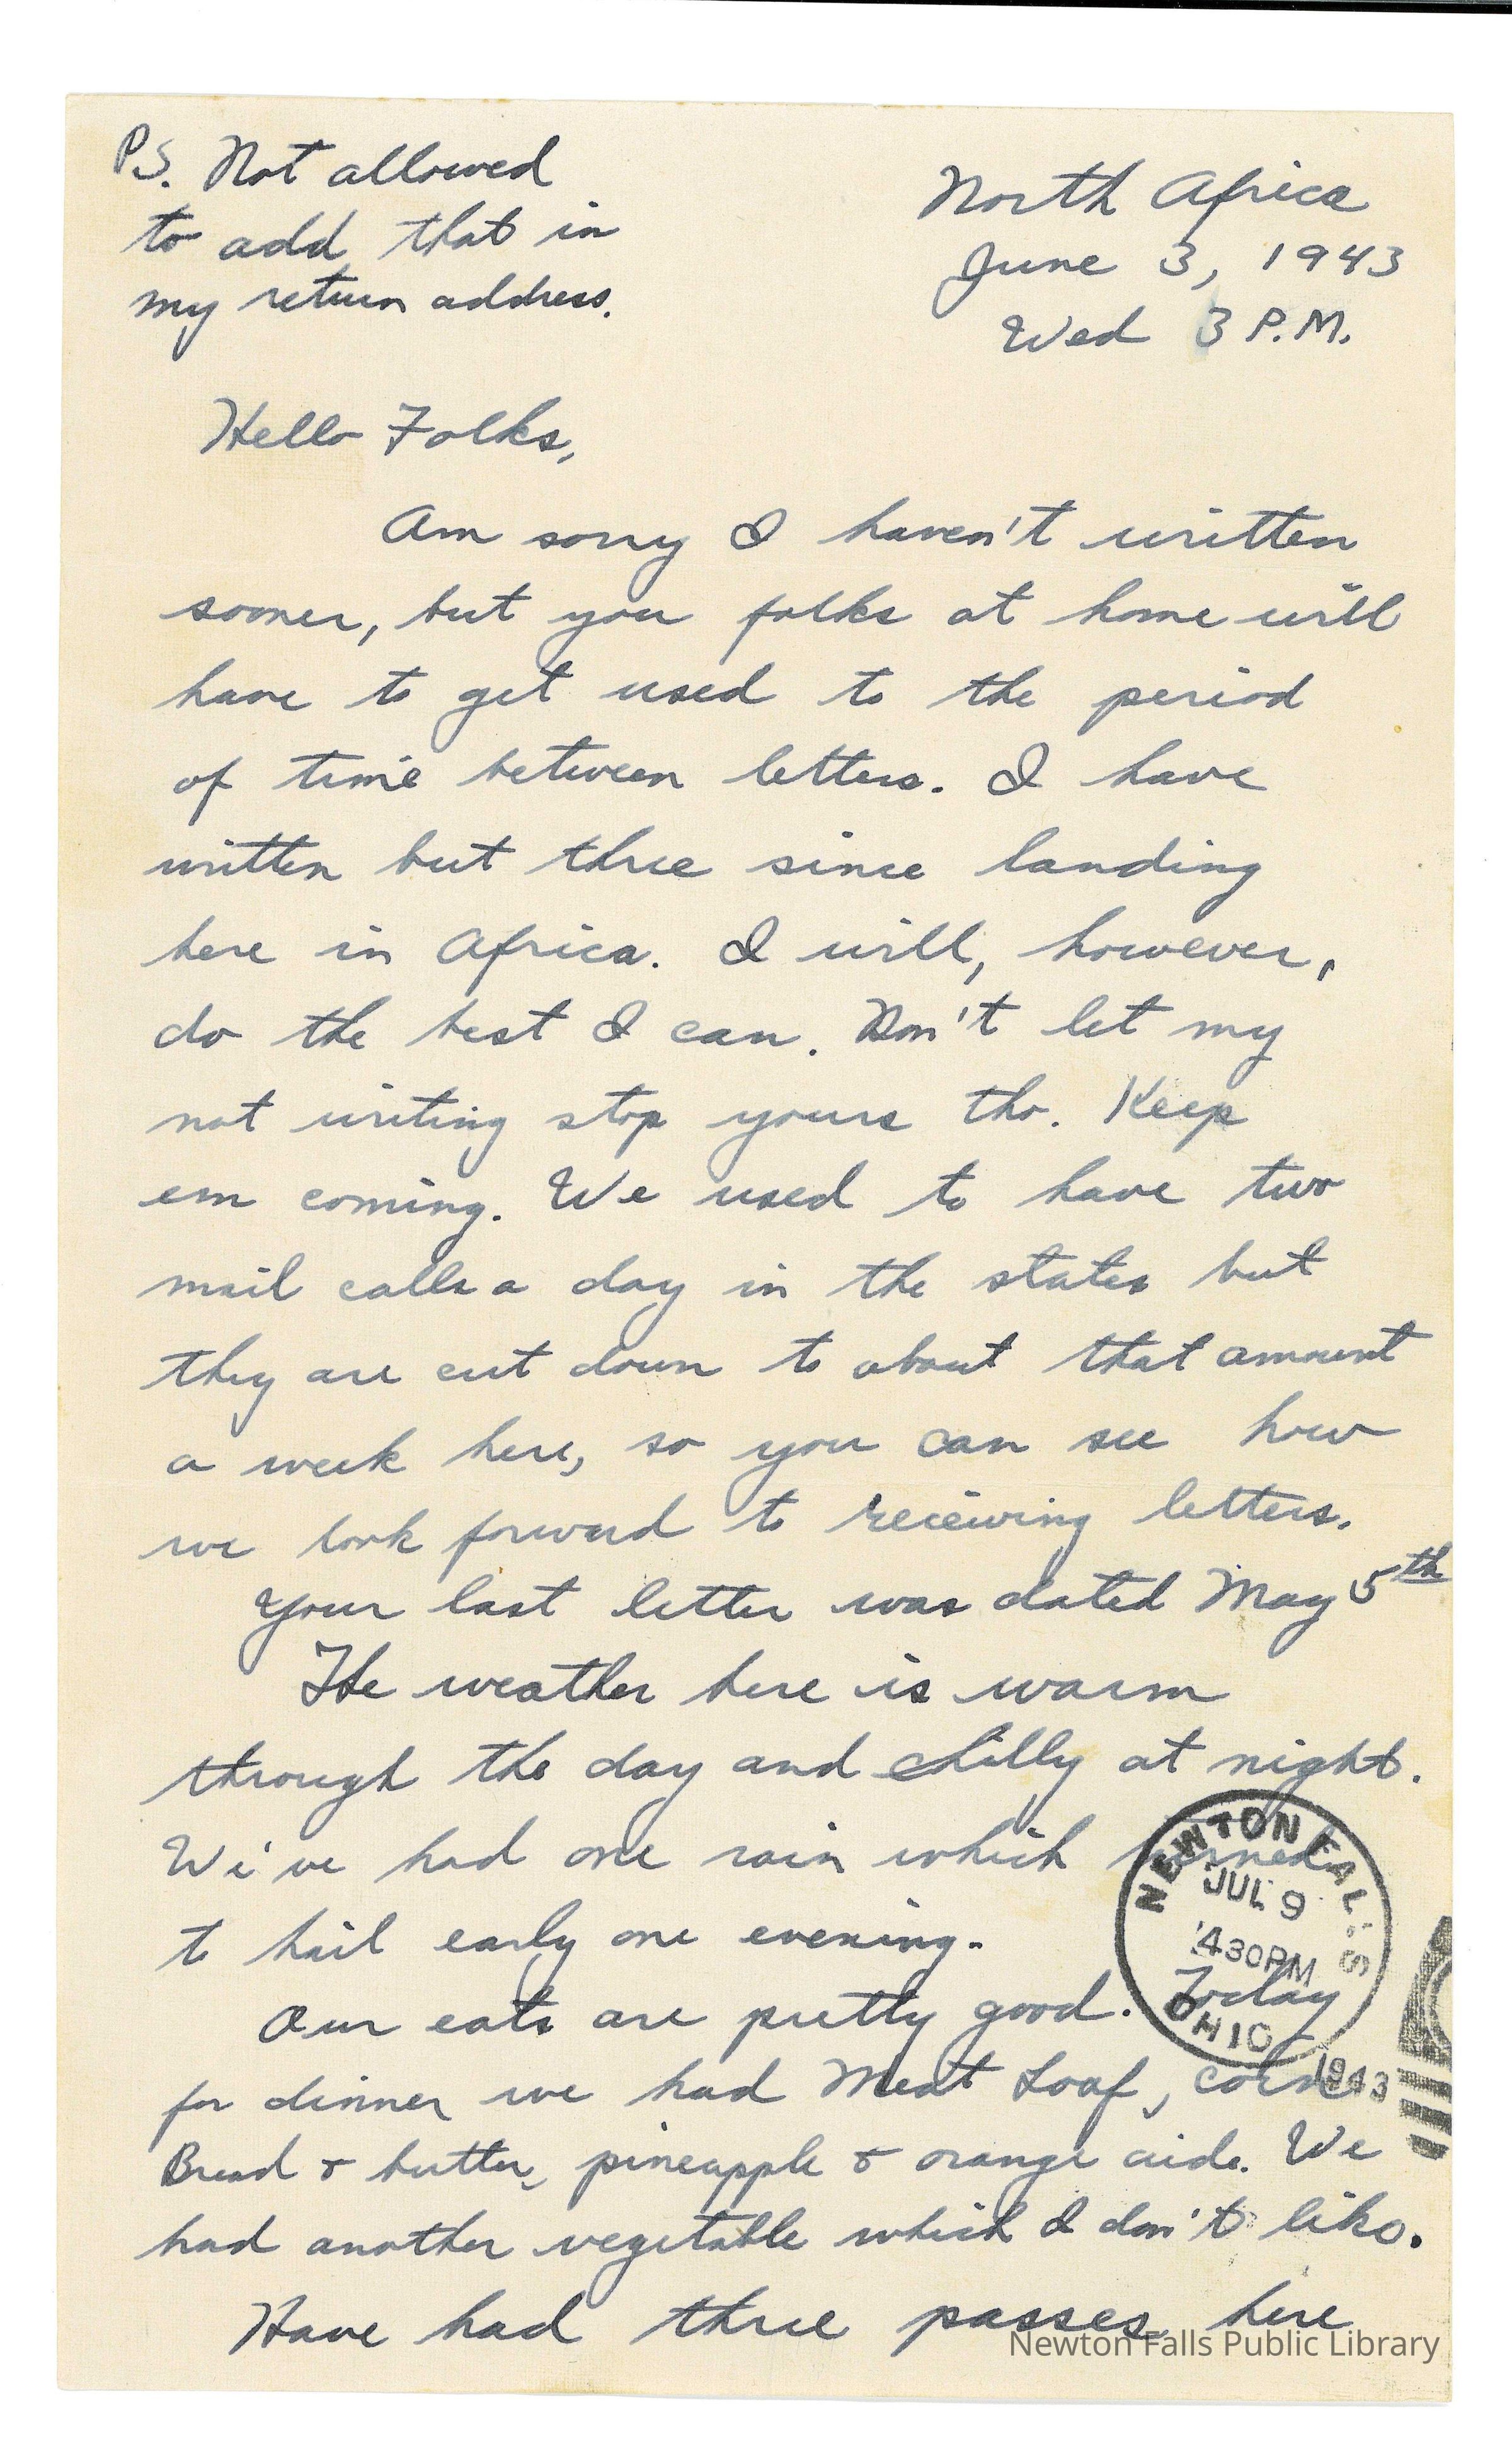 P.S. Not allowed
to add that in
my return address.
North Africa
June 3, 1943
Wed 3 P.M.
Hello Folks,
Am sorry I haven't written
sooner, but you folks at home will
have to get used to the period
of time between letters. I have
written but three since landing
here in Africa. I will, however,
do the best I can. Don't let my
not writing stop yours tho. Keep
em coming. We used to have two
mail calls a day in the states but
they are cut down to about that amount
a week here, so you can see how
we look forward to receiving letters.
Your last letter was dated May 5th
The weather here is warm
through the day and chilly at night.
We've had one rain which turned
to hail early one evening.
Our eats are pretty good. Today
for dinner we had Meat Loaf, corn
Bread & butter, pineapple & orange aide. We
had another vegetable which I don't like.
Have had three passes here
NEWTON FALLS
JUL 9
430PM
OHIO
1943
Newton Falls Public Library